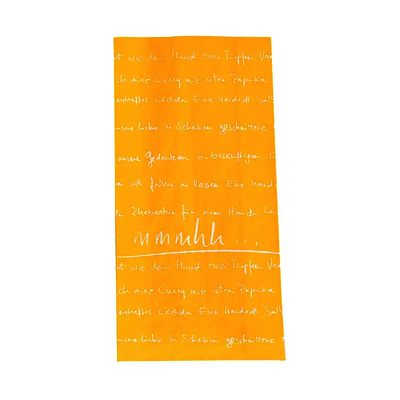 t wie dem Mund zwei Tropfen Van
ch mit Curry mit roten Paprika
enhaftes Lächeln Eine Handvoll Salz
unsere Liebe in Scheiben geschnittene
unsere Gedanken zu besänftigen
fallen zu lassen Eine Hand
Rhabarber für
mmmhh...
t wie dem Mund zwei Tropfen Van
ch mit Curry mit roten Paprika
enhaftes Lächeln Eine Handvoll Salz
unsere Liebe in Scheiben geschnittene